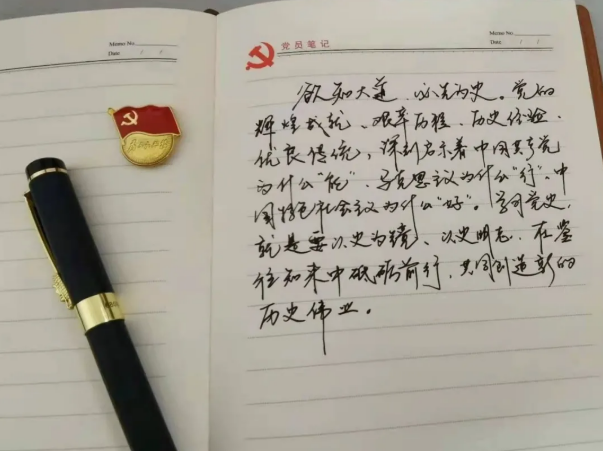 Memo No.
Date / /
为人民服务
党员笔记
Memo No.
Date / /
欲知大道，必先为史。党的
辉煌成就、艰辛历程、历史经验、
优良传统，深刻启示着中国共产党
为什么“能”、马克思主义为什么“行”、中
国特色社会主义为什么“好”。学习党史，
就是要以史为镜、以史明志，在鉴
往知来中砥砺前行，共同创造新的
历史伟业。